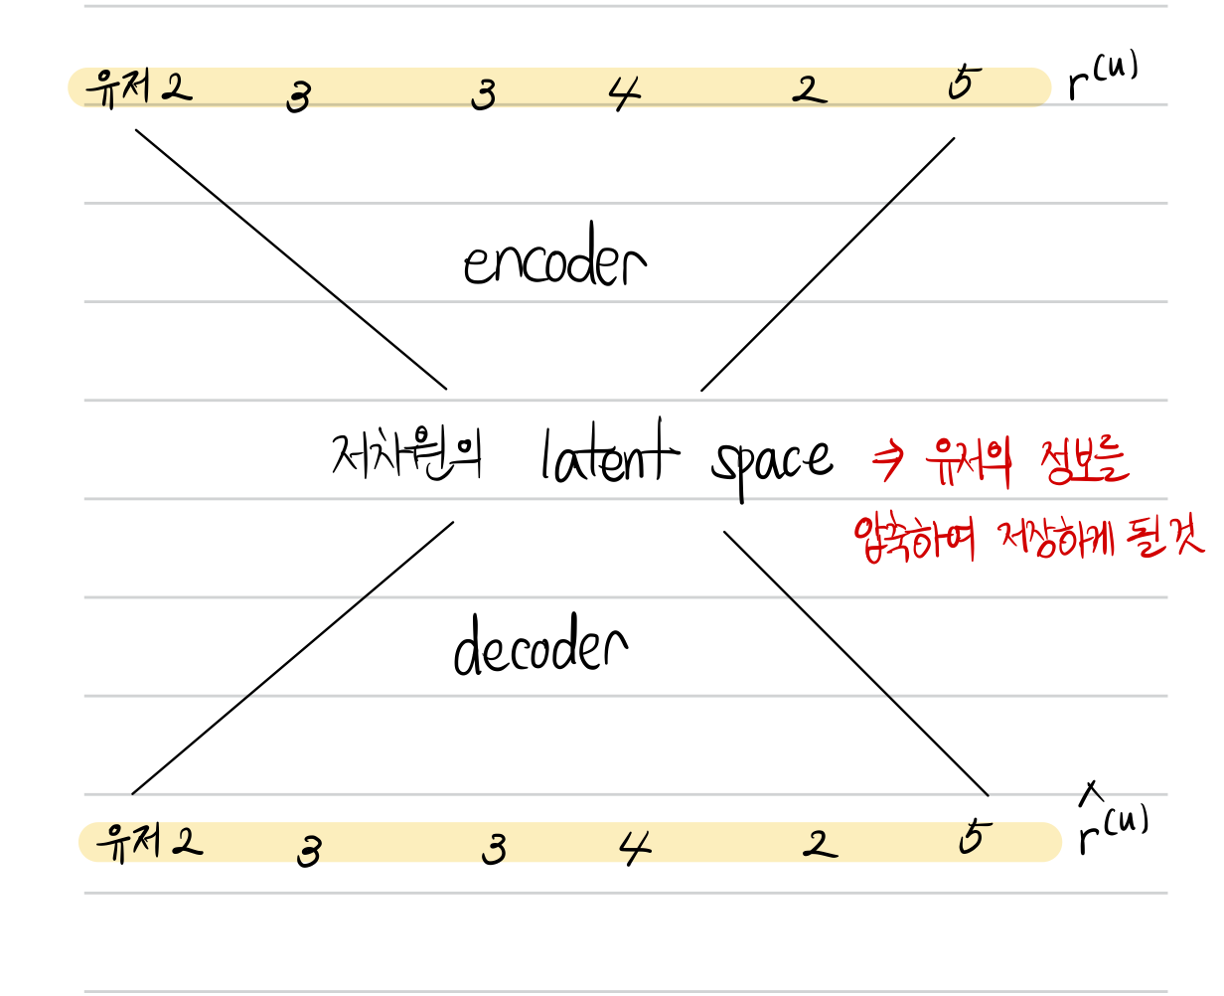 유저 2 3 3 4 2 5 r^(u)
encoder
저차원의 latent space ⇒ 유저의 정보를
압축하여 저장하게 될 것
decoder
유저 2 3 3 4 2 5 r̂^(u)